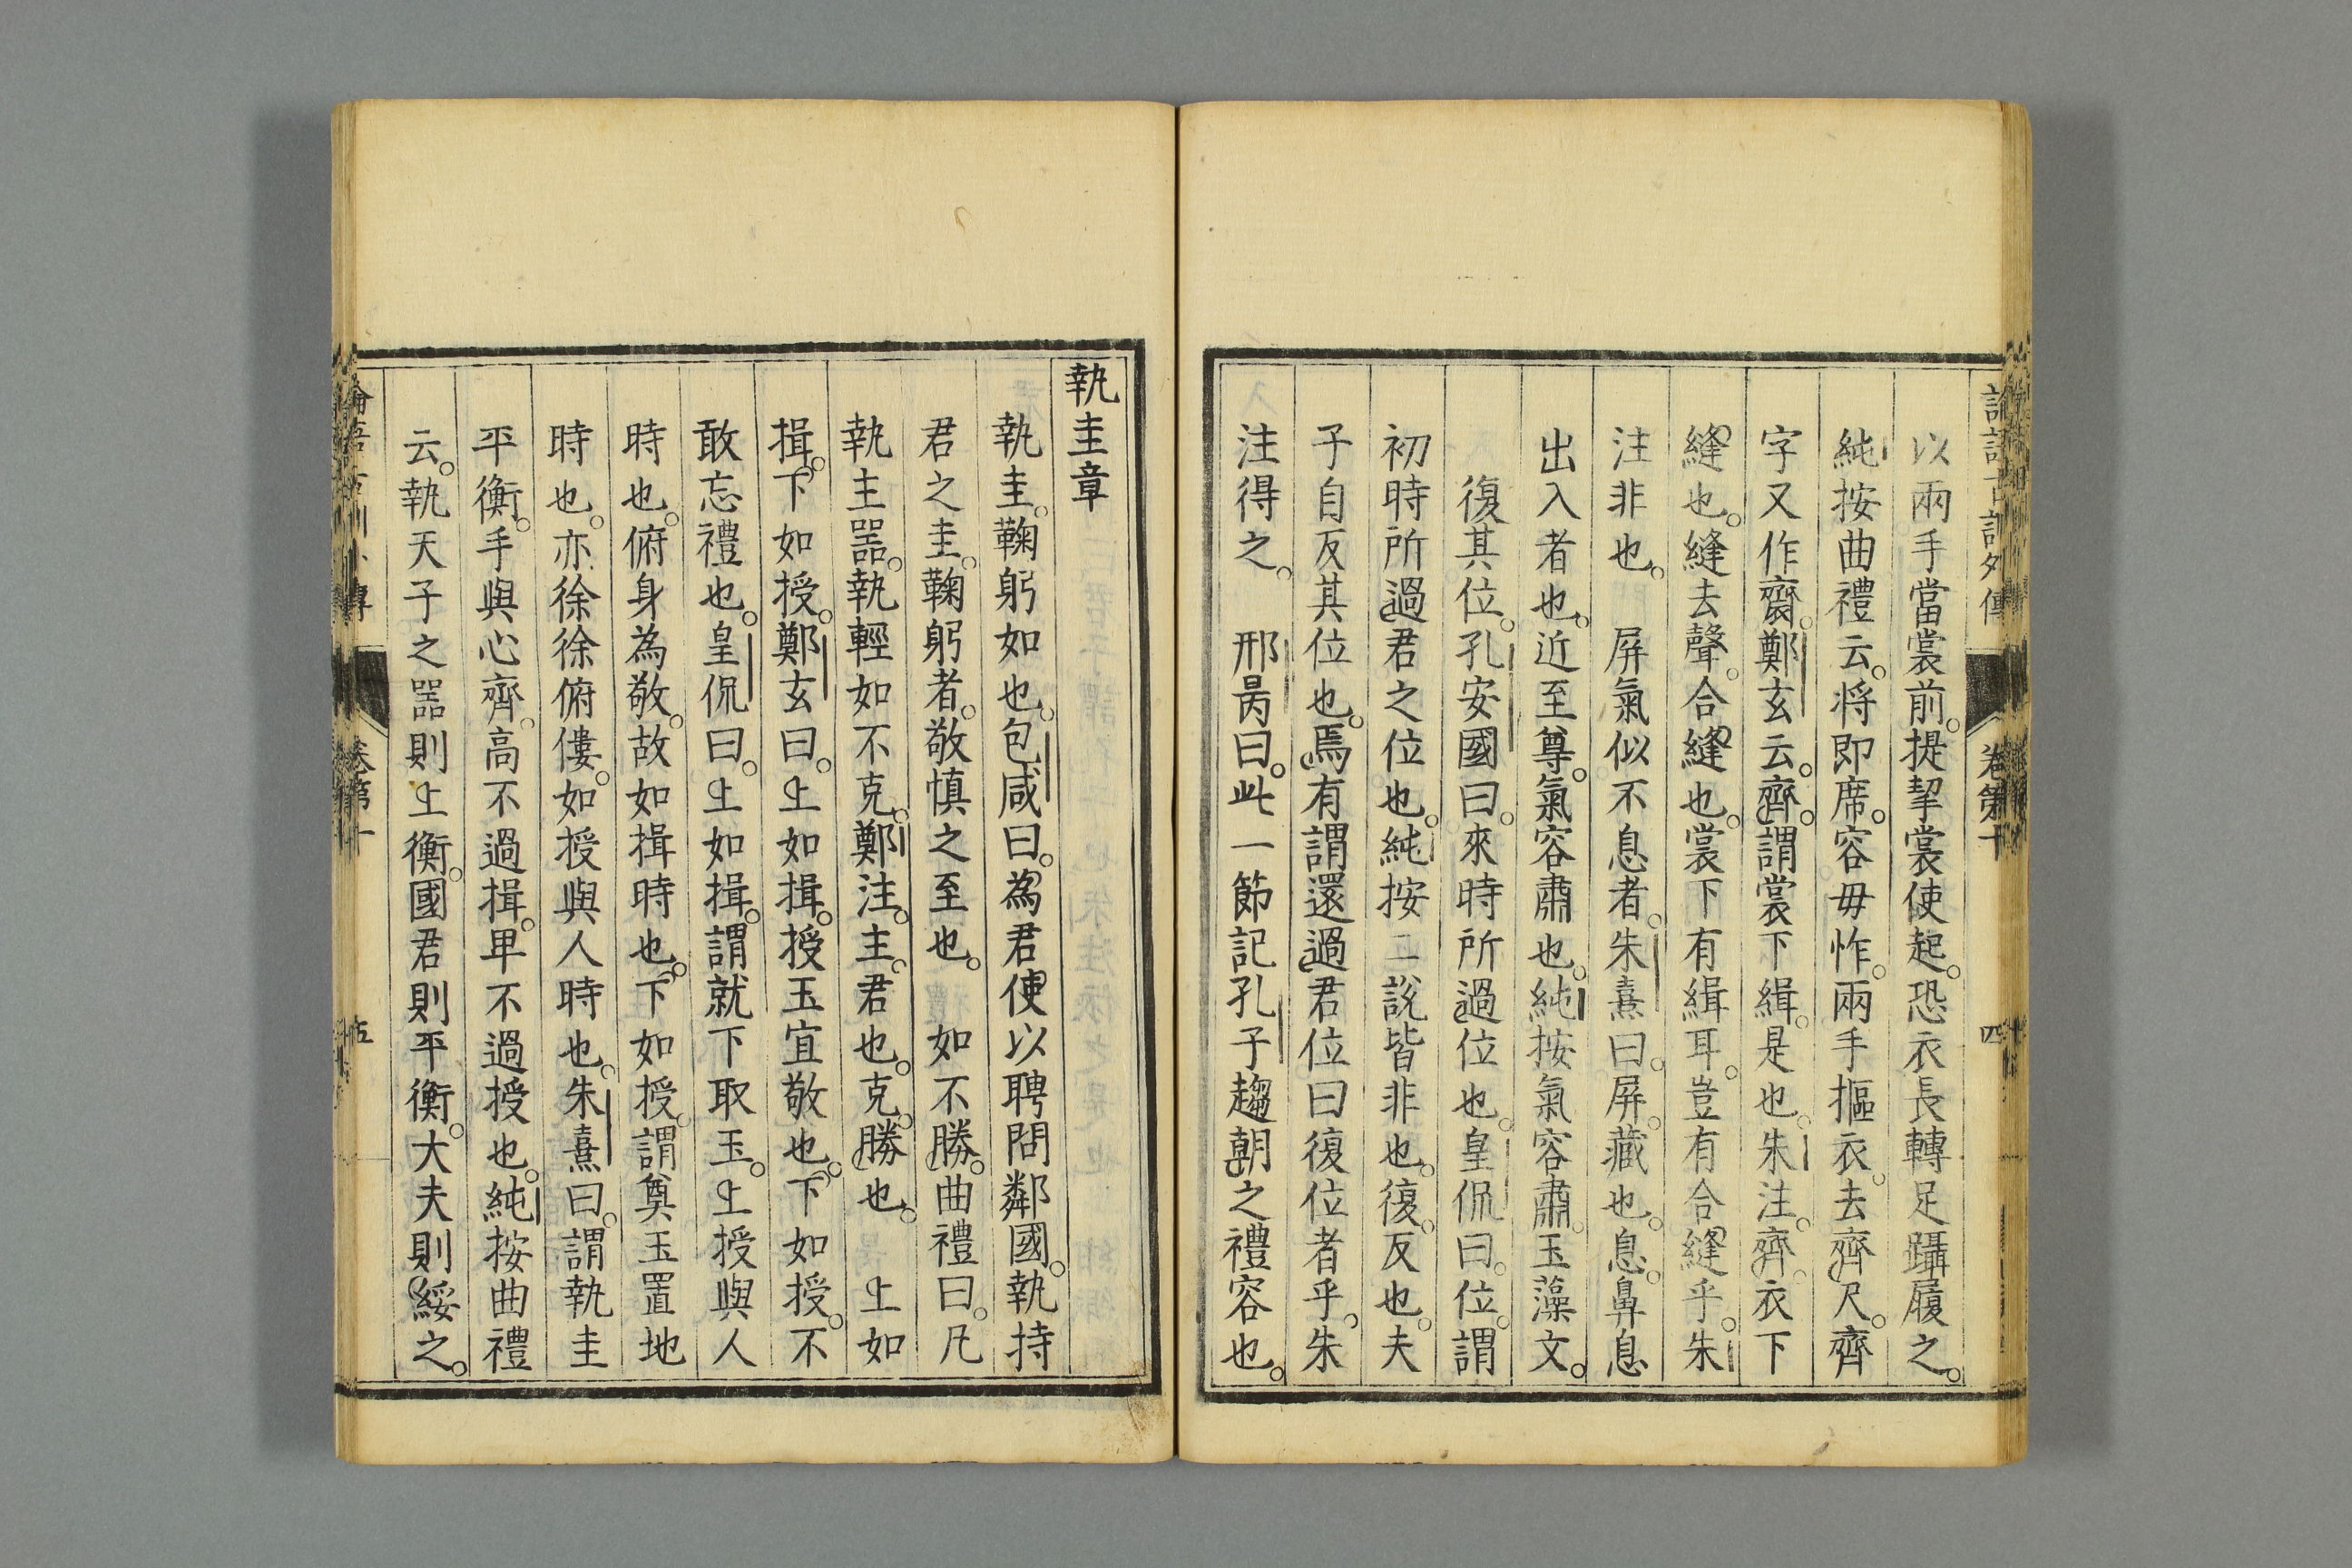 以兩手當裳前。提挈裳使起。恐衣長轉足躡履之。
純按曲禮云。將即席。容毋怍。兩手摳衣。去齊尺。齊
字又作齋。鄭玄云。齊。謂裳下緝。是也。朱注。齊。衣下
縫也。縫去聲。合縫也。裳下有緝耳。豈有合縫乎。朱
注非也。　屏氣似不息者。朱熹曰。屏。藏也。息。鼻息
出入者也。近至尊。氣容肅也。純按氣容肅。玉藻文。
復其位。孔安國曰。來時所過位也。皇侃曰。位。謂
初時所過君之位也。純按二說皆非也。復。反也。夫
子自反其位也。焉有謂還過君位曰復位者乎。朱
注得之。　邢昺曰。此一節記孔子趨朝之禮容也。
卷第十
四
執圭章
執圭。鞠躬如也。包咸曰。為君使以聘問鄰國。執持
君之圭。鞠躬者。敬慎之至也。　如不勝。曲禮曰。凡
執主器。執輕如不克。鄭注。主。君也。克。勝也。　上如
揖。下如授。鄭玄曰。上如揖。授玉宜敬也。下如授。不
敢忘禮也。皇侃曰。上如揖。謂就下取玉。上授與人
時也。俯身為敬。故如揖時也。下如授。謂奠玉置地
時也。亦徐徐俯僂。如授與人時也。朱熹曰。謂執圭
平衡。手與心齊。高不過揖。卑不過授也。純按曲禮
云。執天子之器則上衡。國君則平衡。大夫則綏之。
卷第十
五